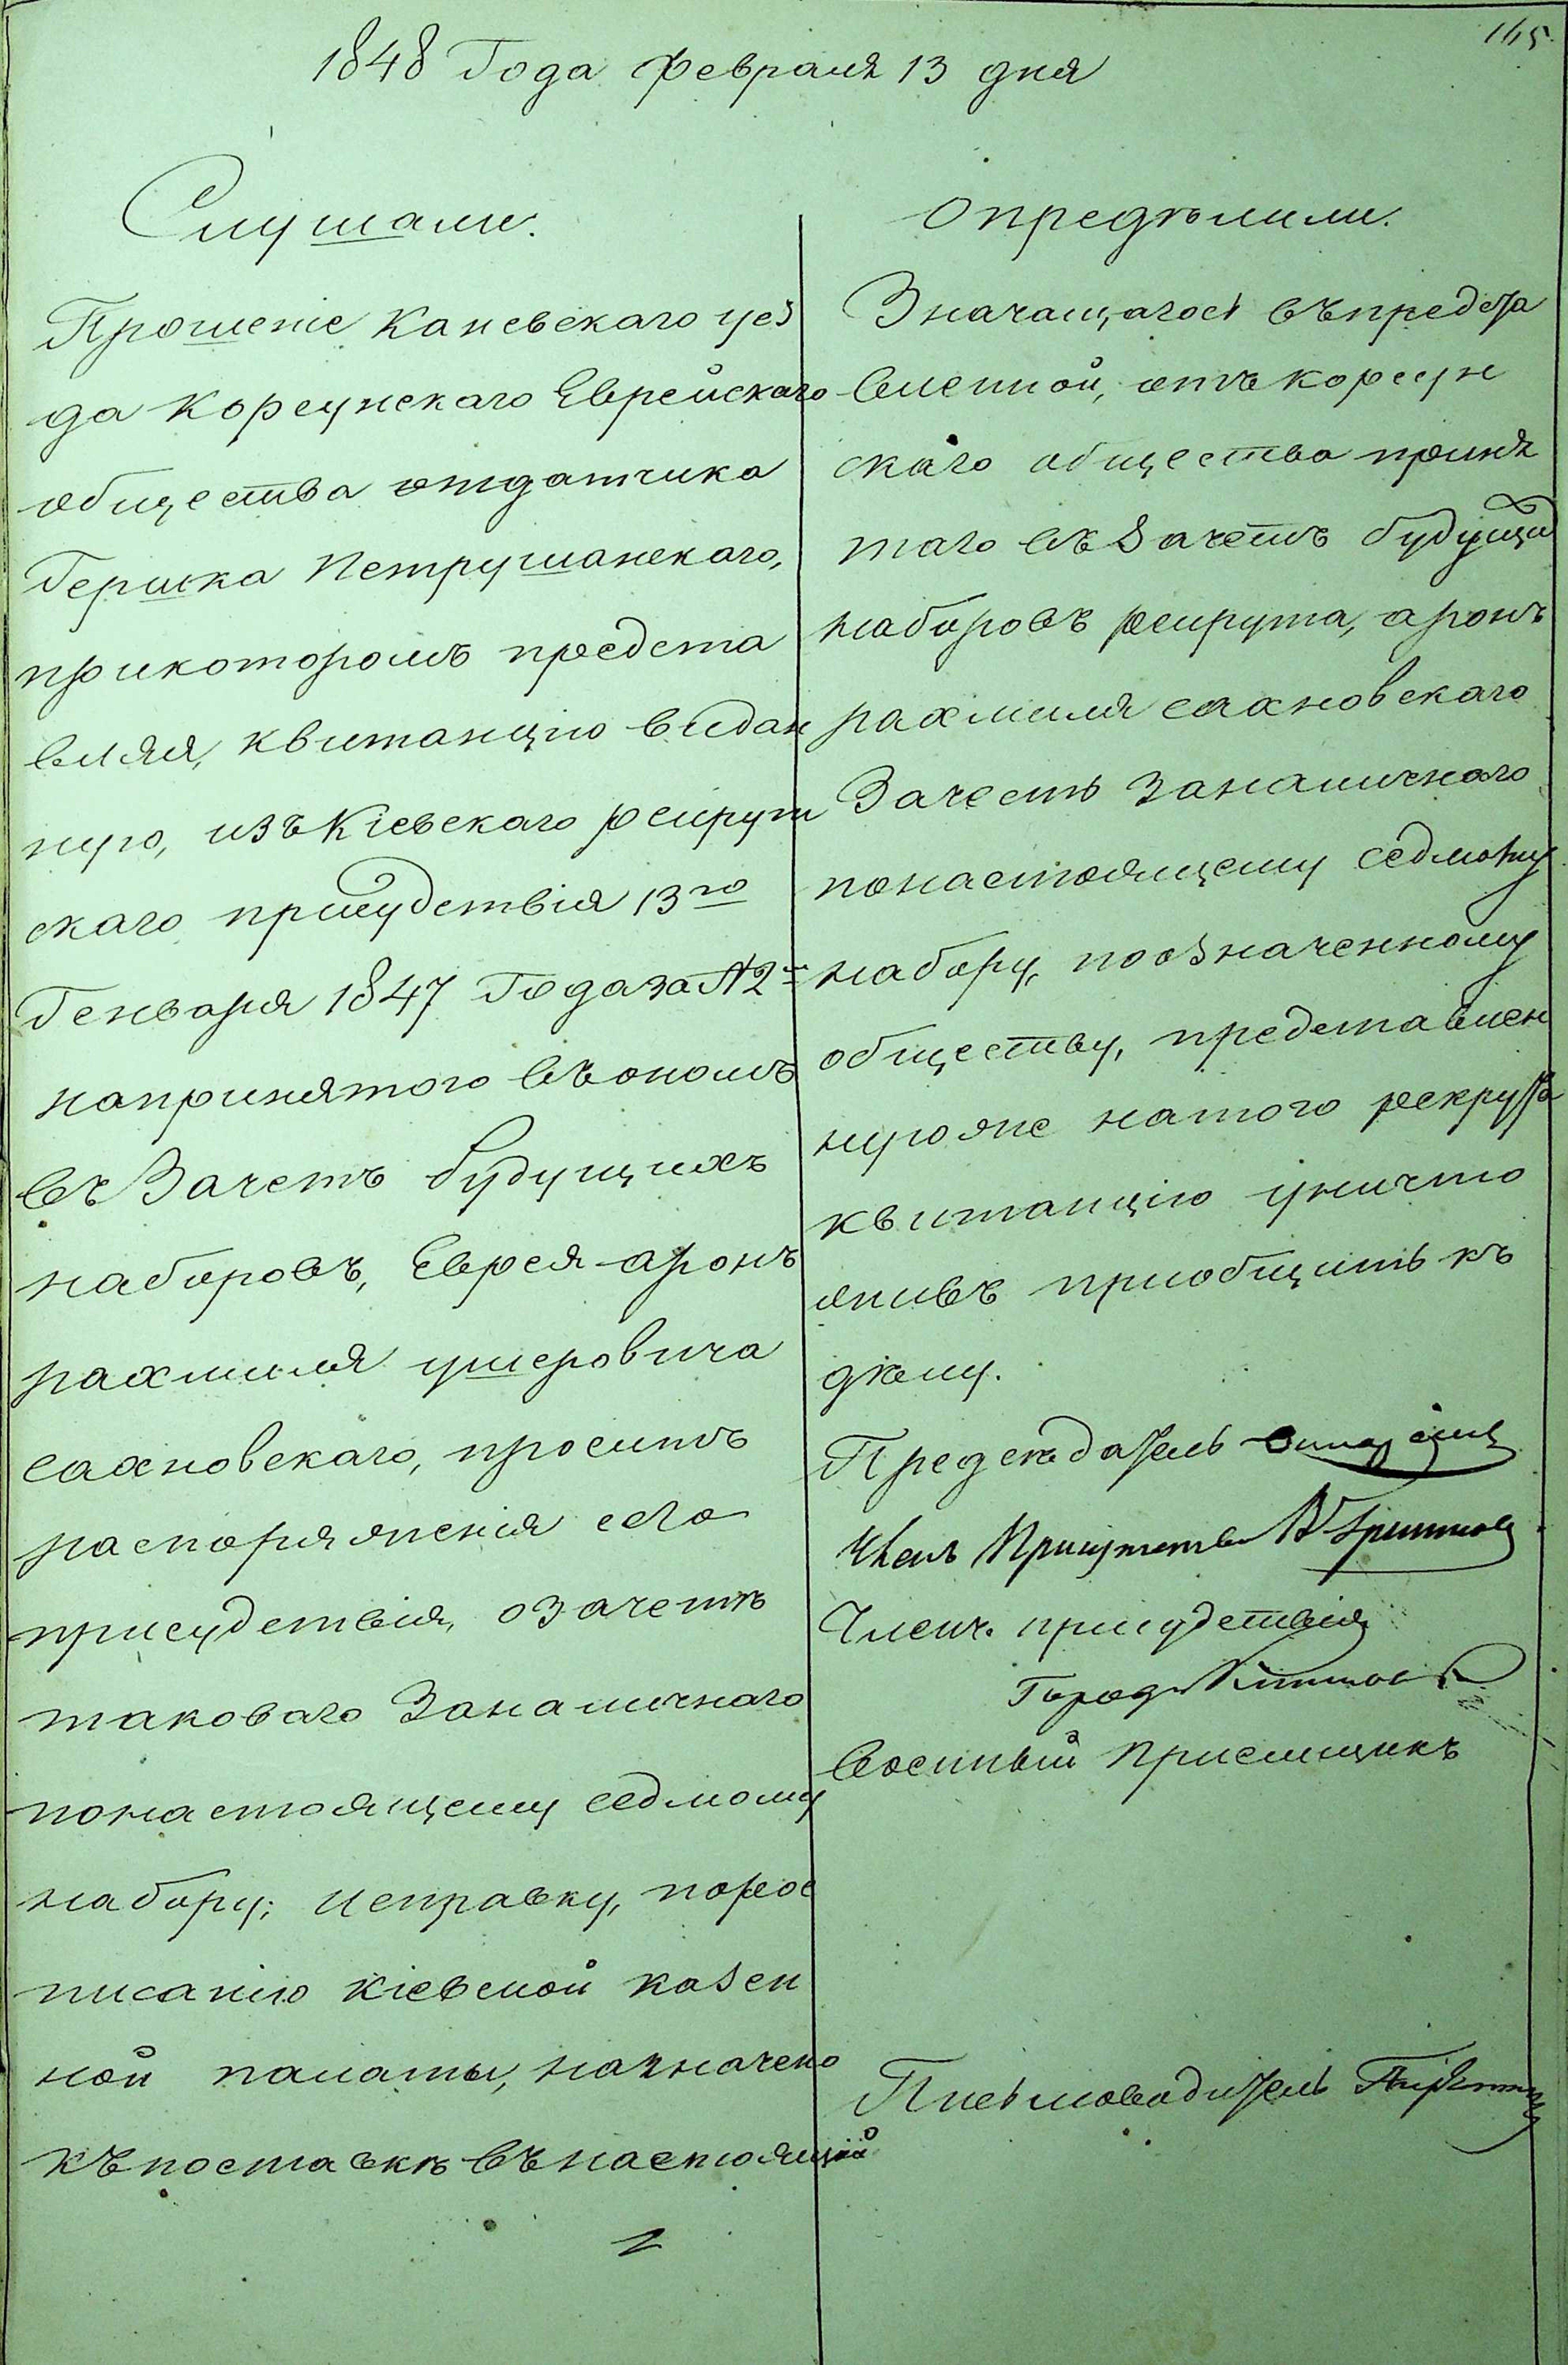 165.
1848 Года февраля 13 дня
Слушали.
Прошеніе Каневскаго уез
да Корсунскаго Еврейскаго
общества отдатчика
Гершка Петрушанскаго,
прикоторомъ предста
вляя, квитанцію видан
ную, изъ Кіевскаго рекрут
скаго присудствія 13го
Генваря 1847 Года за №2м
напринятого въ ономъ
въ Зачетъ будущихъ
наборовъ, Еврея аронъ
рахмиля ушеровича
сахновскаго, проситъ
распоряженія сего
присудствія, о зачетѣ
таковаго Заналичнаго
понастоящему седмому
набору; исправку, порос
писанію Кіевской казен
ной палаты, назначено
къ поставкѣ въ настоящій
Опредѣлили.
Значащагось въ предста
вленной, отъ корсун
скаго общества приня
таго въ Зачетъ будущи
наборовъ рекрута, аронъ
рахмиля сахновскаго
Зачесть заналичнаго
понастоящему седмому
набору, поозначенному
обществу, представлен
ную же натого рекрута
квитанцію уничто
живъ приобщить къ
дѣлу.
Предсѣдатель
Членъ Присутствія
Членъ присудствія
Город
Военный Приемщикъ
Письмоводитель